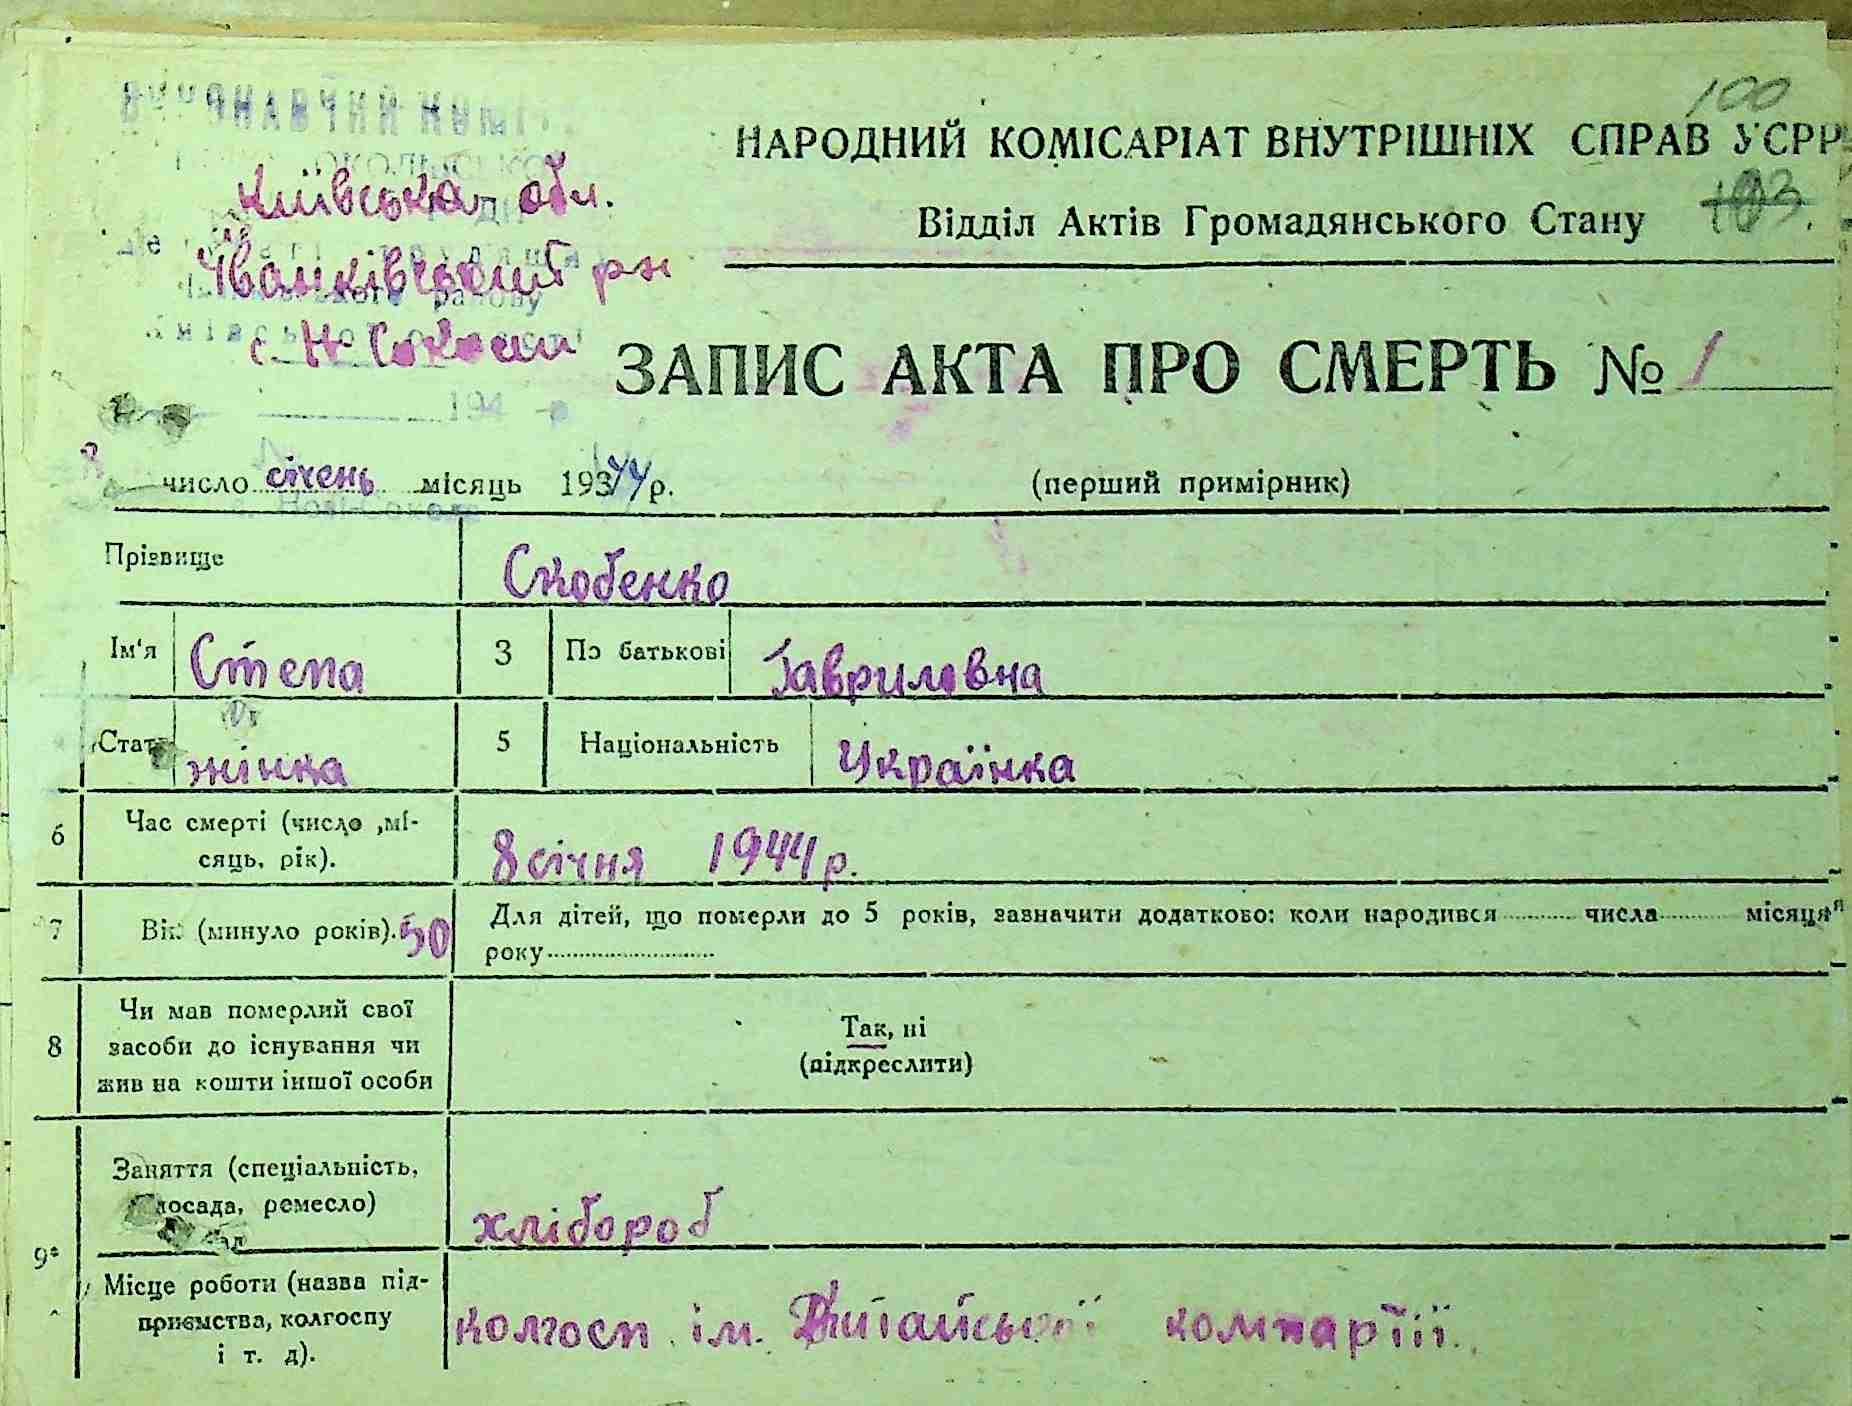 100
НАРОДНИЙ КОМІСАРІАТ ВНУТРІШНІХ СПРАВ УСРР
103.
Відділ Актів Громадянського Стану
Київська обл.
Іванківський рн
с. Н Соколи
ЗАПИС АКТА ПРО СМЕРТЬ № 1
8 число січень місяць 1944 р. (перший примірник)
Прізвище Скобенко
Ім'я Степа 3 По батькові Гавриловна
Стать жінка 5 Національність Українка
6 Час смерті (число ,мі-
сяць, рік). 8 січня 1944 р.
7 Вік (минуло років). 50 Для дітей, що померли до 5 років, зазначити додатково: коли народився числа місяця
року
8 Чи мав померлий свої
засоби до існування чи
жив на кошти іншої особи
Так, ні
(підкреслити)
9 Заняття (спеціальність,
посада, ремесло) хлібороб
Місце роботи (назва під-
приємства, колгоспу
і т. д). колгосп ім. Китайської компартії.